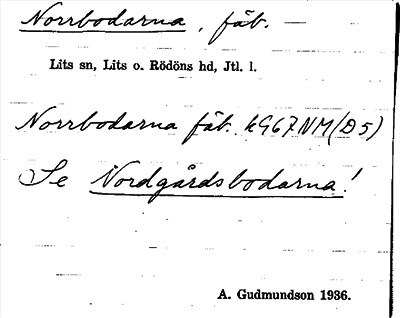 Norrbodarna, fäb. —
Lits sn, Lits o. Rödöns hd, Jtl. l.
Norrbodarna fäb. k967NM(D5)
Se Nordgårdsbodarna!
A. Gudmundson 1936.